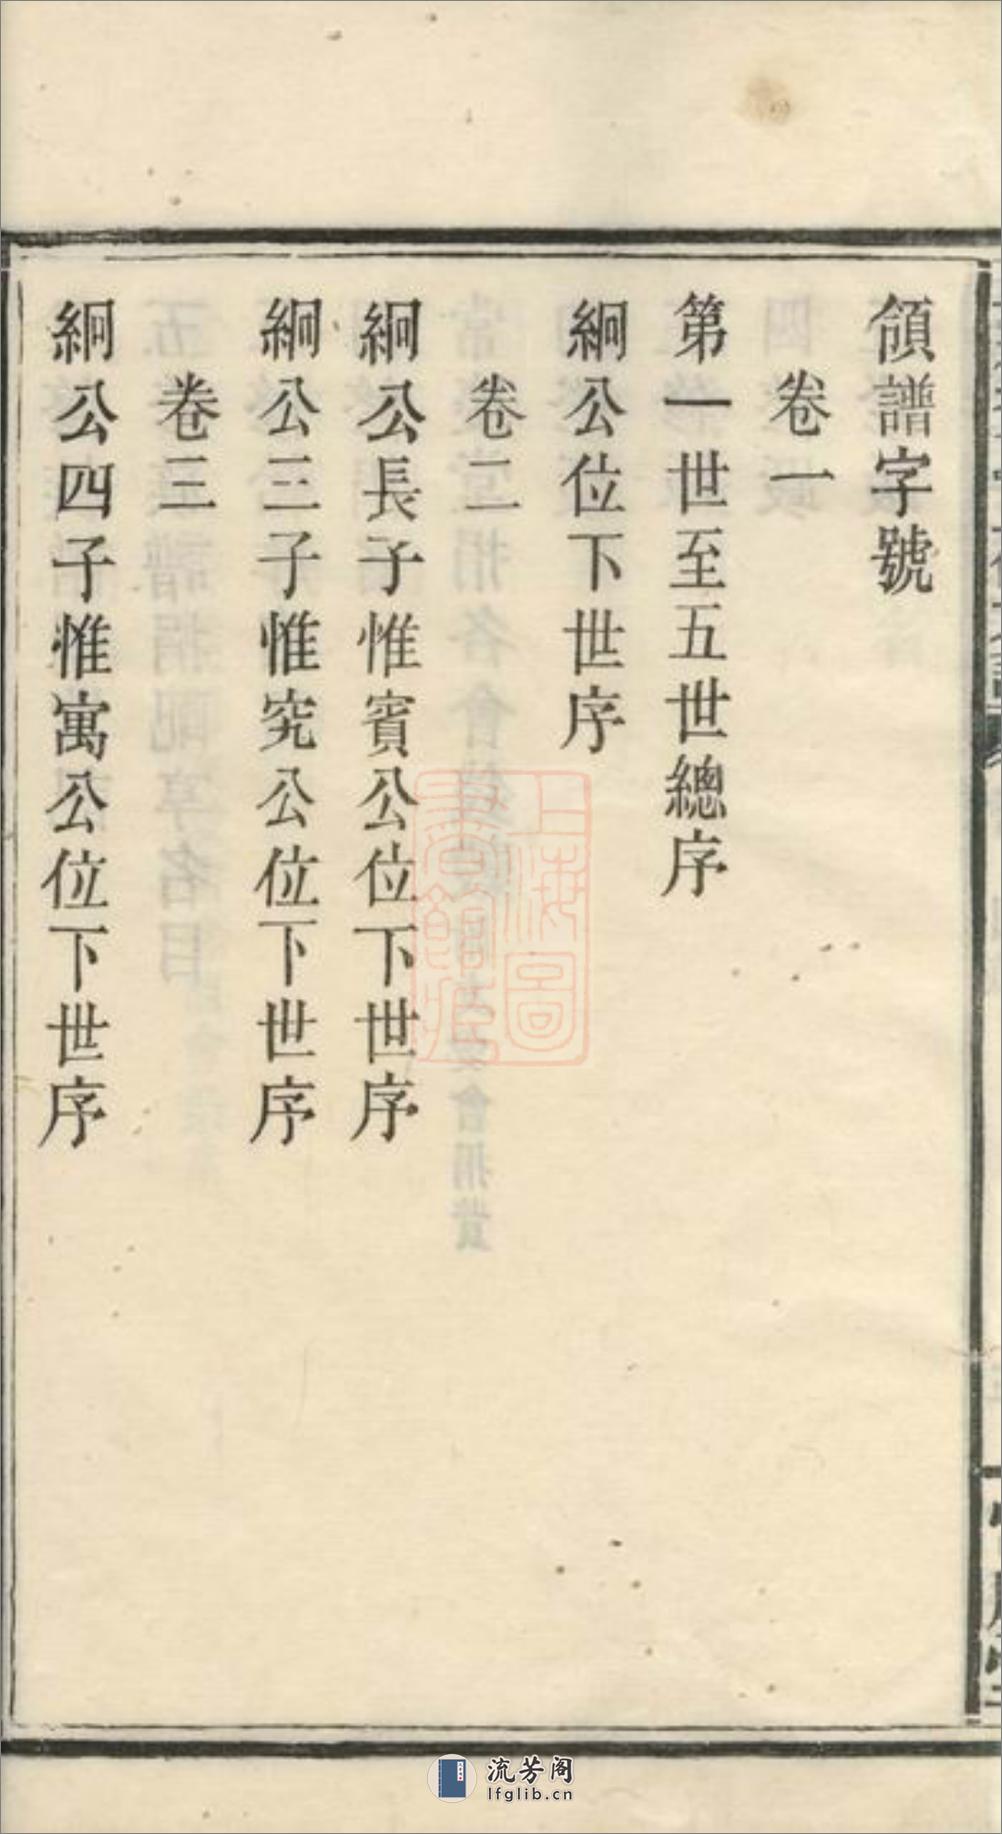 領譜字號
卷一
第一世至五世總序
絅公位下世序
卷二
絅公長子惟賓公位下世序
絅公三子惟究公位下世序
卷三
絅公四子惟寓公位下世序
上海圖書館藏
流芳阁
lfglib.cn